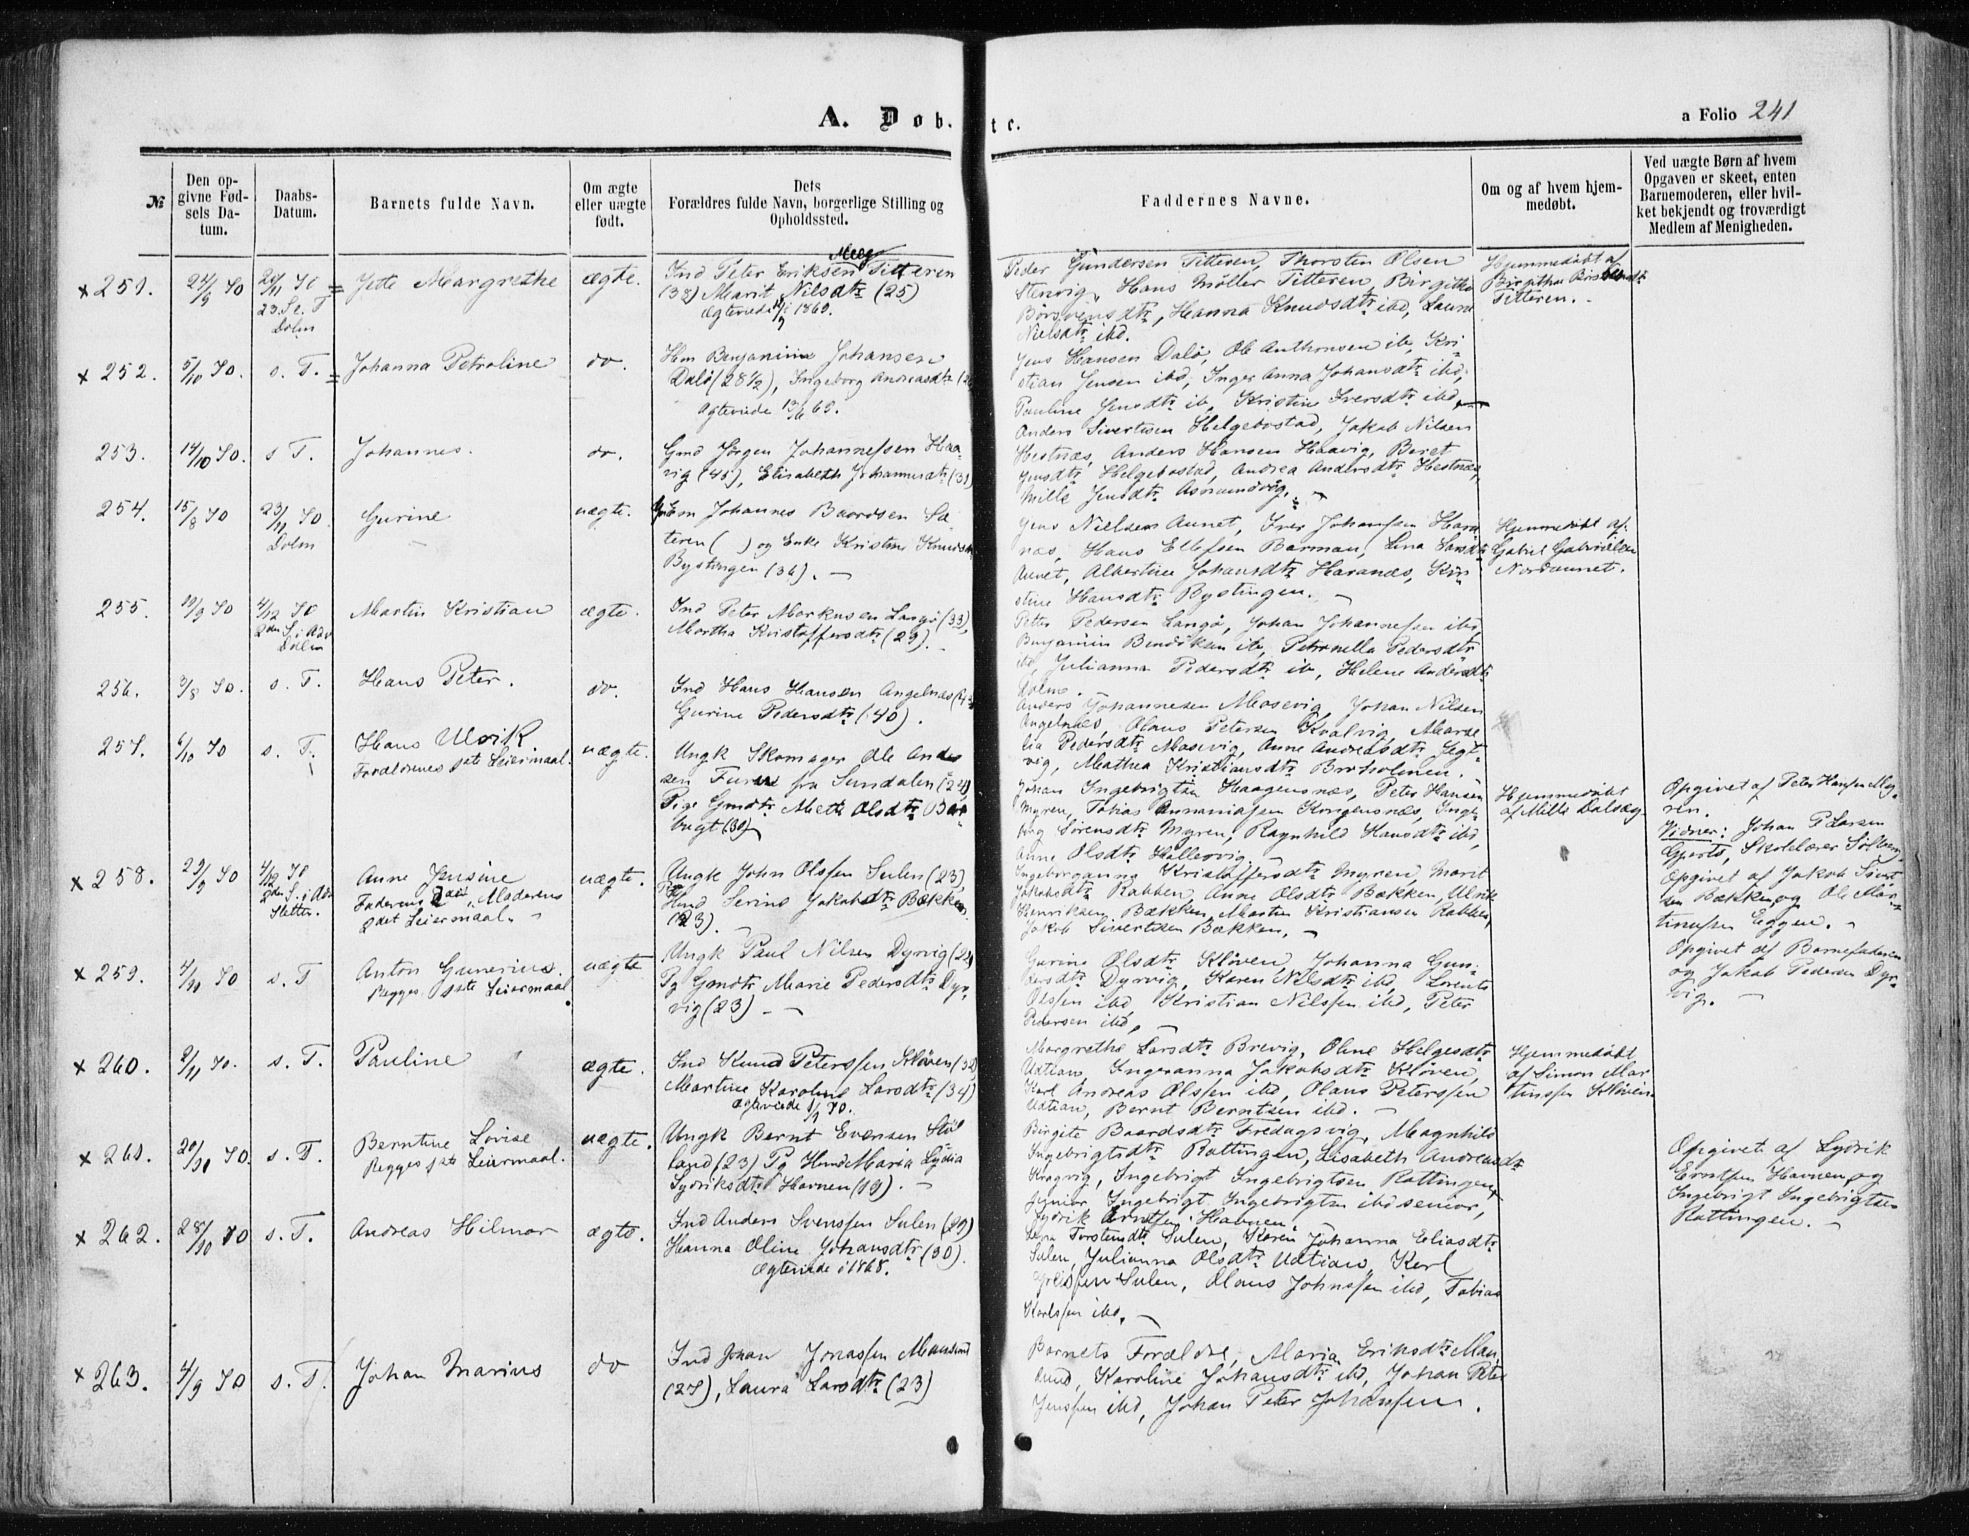 A. Døb.tc.
a Folio 241
№
Den op-
givne Fød-
sels Da-
tum.
Daabs-
Datum.
Barnets fulde Navn.
Om ægte
eller uægte
født.
Dets
Forældres fulde Navn, borgerlige Stilling og
Opholdssted.
Faddernes Navne.
Om og af hvem hjem-
medøbt.
Ved uægte Børn af hvem
Opgaven er skeet, enten
Barnemoderen, eller hvil-
ket bekjendt og troværdigt
Medlem af Menigheden.
x 251. 24/9 70
20/11 70
23. S. e. T.
Dolm
Jette Margrethe
ægte.
Ind Peter Eriksen Titteren
(38) Marit Nilsdtr (25)
Ægteviede 1869.
Peder Gundersen Titteren, Thorsten Olsen
Stenvig, Hans Møller Titteren, Birgitha
Hanna Knudsdtr ibd, Laura
Nielsdtr ibd.
Hjemmedøbt af
Birgitha
Titteren.
x 252. 5/10 70. s. T.
Johanna Petroline
do.
Benjamin Johansen
Dalø (28½), Ingeborg Andreasdtr
Ægteviede 13/6 69.
Jens Hansen Dalø, Ole Anthonsen ib, Kri-
stian Jensen ibd, Inger Anna Johansdtr ibd,
Pauline Jensdtr ib, Kristine Iversdtr ibd,
253. 14/10 70. s T.
Johannes.
do.
Gmd Jørgen Johannessen Haa-
vig (45), Elisabeth Johannesdtr (31)
Anders Sivertsen Helgebostad, Jakob Nilsen
Hestnæs, Anders Hansen Haavig, Beret
Jensdtr Helgebostad, Andrea Andersdtr Hestnæs,
Mille Jensdtr
254. 15/8 70
23/11 70.
Dolm
Gurine
uægte.
Em Johannes Baardsen Sæ-
teren ( ) og Enke Kristine Knudsdtr
Bystingen (36).
Jens Nielsen Aunet, Iver Johansen Hava-
næs, Hans Ellefsen Barman, Lina Larsdtr
Aunet, Albertine Johansdtr Havanæs, Kri-
stine Hansdtr Bystingen.
Hjemmedøbt af
Gabriel Gabrielsen
Nordaunet.
255. 19/9 70
4/12 70
2den S. i Adv
Dolm
Martin Kristian
ægte.
Ind Peter Markusen Langø (33),
Martha Kristoffersdtr (29).
Petter Pedersen Langø, Johan Johannesen ibd,
Benjamin Bendiksen ib, Petronella Pedersdtr
ibd, Julianna Pedersdtr ib, Helene Andersdtr
Dolmø.
256. 3/8 70. s. T.
Hans Peter.
do.
Ind Hans Hansen Angelnæs
Gurine Pedersdtr (40).
Anders Johannesen Mosevig, Johan Nilsen
Angelnæs, Olaus Petersen Kvalvig, Marse-
lia Pedersdtr Mosevig, Anne Andreasdtr Segt-
vig, Mathea Kristiansdtr Burholmen.
257. 6/10 70 s. T.
Hans Ulrik
Forældrenes 1ste Leiermaal.
uægte.
Ungk Skomager Ole Ander
sen Furen fra Sundalen (24)
Pige Gmdtr Mette Olsdtr Bør-
bugt (30)
Johan Ingebrigtsen Haagensnæs, Peter Hansen
Myren, Tobias Ananiassen Kongensnæs, Inge-
borg Sørensdtr Myren, Ragnhild Hansdtr ibd,
Anne Olsdtr Hallervig.
Hjemmedøbt
af Mille Dalsæg.
Opgivet af Peter Hansen My-
ren.
Vidner: Johan P Larsen
Skolelærer
x 258. 29/9 70
4/12 70
2den S. i Adv
Sletten.
Anne Jensine
Faderens 2det, Moderens
2det Leiermaal.
uægte.
Ungk John Olssen Sulen (23),
Serine Jakobsdtr Bækken
(23).
Ingeborganna Kristoffersdtr Myren, Marit
Jakobsdtr Rabben, Anne Olsdtr Bækken, Ulrik
Henriksen Bækken, Martin Kristiansen Rabben,
Jakob Sivertsen Bækken.
Opgivet af Jakob Sivert-
sen Bækken og Ole Mar-
tinussen Eggen.
x 259. 4/10 70 s. T
Anton Gunerius.
Begges 1ste Leiermaal.
uægte
Ungk Paul Nilsen Dyrvig (22)
Pg Gmdtr Marie Pedersdtr Dyr-
vig (23)
Gurine Olsdtr Kløven, Johanna Gun-
dersdtr Dyrvig, Karen Nilsdtr ibd, Lorents
Olssen ibd, Kristian Nilssen ibd, Peter
Pedersen ibd,
Opgivet af Barnefaderen
og Jakob Pedersen Dyr-
vig.
x 260. 2/11 70. s. T.
Pauline
ægte.
Ind Knud Peterssen Kløven (32)
Martine Karoline Larsdtr (34)
Ægteviede 70.
Margrethe Larsdtr Brevig, Oline Helgesdtr
Udtian, Ingeranna Jakobsdtr Kløven,
Karl Andreas Olssen ibd, Olaus Peterssen
Udtian, Bernt Berntsen ibd.
Hjemmedøbt
af Simon Mar-
tinssen Kløven.
x 261. 20/10 70. s. T.
Berntine Lovise
Begges 1ste Leiermaal.
uægte.
Ungk Bernt Evensen Støl
land (23) Pg Hmd Maria Lydia
Lydriksdtr Havnen (19).
Birgite Baardsdtr Fredagsvig, Magnhild
Ingebrigtsdtr Rottingen, Lisabeth Andreasdtr
Kragvig, Ingebrigt Ingebrigtsen Rottingen
junior, Ingebrigt Ingebrigtsen ibd senior,
Lydrik Erntsen Havnen.
Opgivet af Lydrik
Erntsen Havnen og
Ingebrigt Ingebrigtsen
Rottingen.
x 262. 28/10 70 s. T.
Andreas Hilmar
ægte.
Ind Anders Svenssen Sulen (29)
Hanna Oline Johansdtr (30).
Ægteviede i 1868.
Torstensdtr Sulen, Karen Johanna Eliasdtr
Sulen, Julianna Olsdtr Udtian, Karl
Sulen, Olaus Johnssen ibd, Tobias
Karlssen ibd.
x 263. 4/9 70 s. T.
Johan Marius
do
Ind Johan Jonassen Mausund
(27), Laura Larsdtr (23)
Barnets Forældre, Maria Eriksdtr Mau
sund, Karoline Johansdtr ibd, Johan Peter
Jenssen ibd, Johan Peter Johanssen.